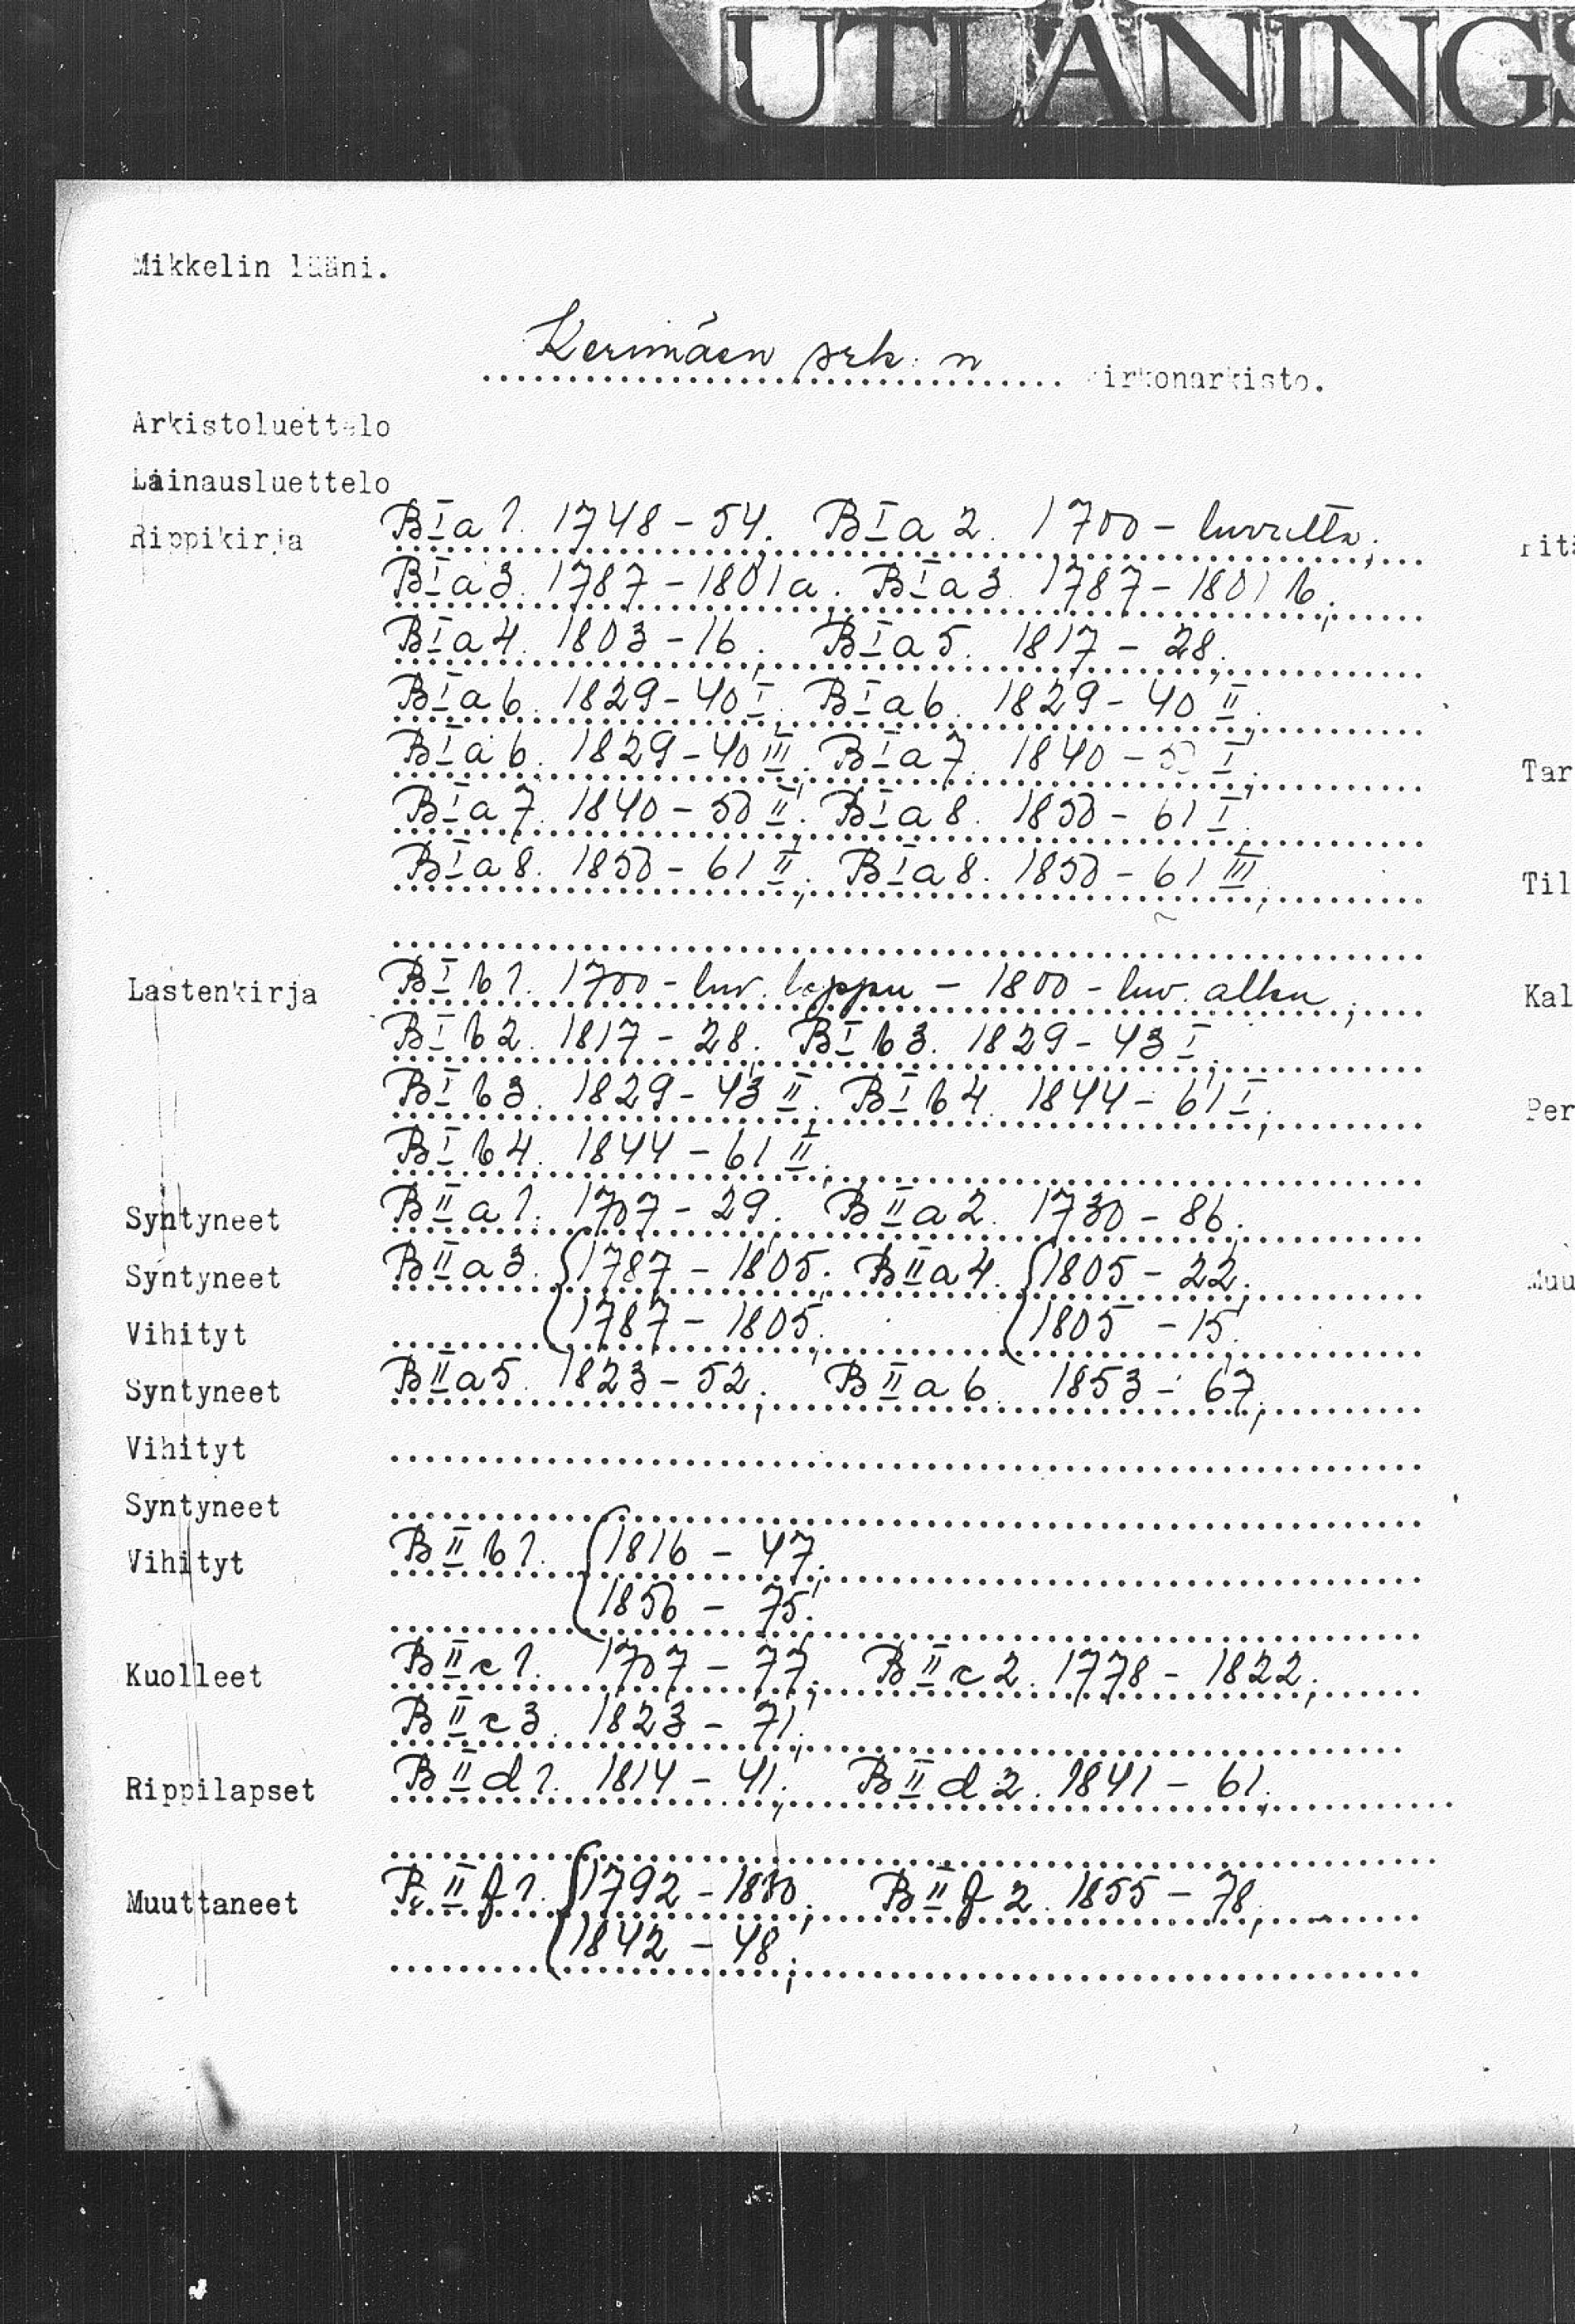 UTLÅNINGS
Mikkelin lääni.
Kerimäen srk:n kirkonarkisto.
Arkistoluettelo
Lainausluettelo
Rippikirja BIa1. 1748-54. BIa2. 1700-luvulta;
BIa3. 1787-1801a; BIa3. 1787-1801b;
BIa4. 1803-16; BIa5. 1817-28;
BIa6. 1829-40 I; BIa6. 1829-40 II;
BIa6. 1829-40 III; BIa7. 1840-50 I;
BIa7. 1840-50 II; BIa8. 1850-61 I;
BIa8. 1850-61 II; BIa8. 1850-61 III;
Lastenkirja BIb1. 1700-luv. loppu - 1800-luv. alku;
BIb2. 1817-28; BIb3. 1829-43 I;
BIb3. 1829-43 II; BIb4. 1844-61 I;
BIb4. 1844-61 II;
Syntyneet BIIa1. 1707-29; BIIa2. 1730-86;
Syntyneet BIIa3. {1787-1805; BIIa4. {1805-22;
Vihityt {1787-1805; {1805-15;
Syntyneet BIIa5. 1823-52; BIIa6. 1853-67;
Vihityt
Syntyneet
Vihityt BIIb1. {1816-47;
{1856-75;
Kuolleet BIIc1. 1707-77; BIIc2. 1778-1822;
BIIc3. 1823-71;
Rippilapset BIId1. 1814-41; BIId2. 1841-61;
Muuttaneet BIIf1. {1792-1830; BIIf2. 1855-78;
{1842-48;
Tar
Til
Kal
Per
Muu